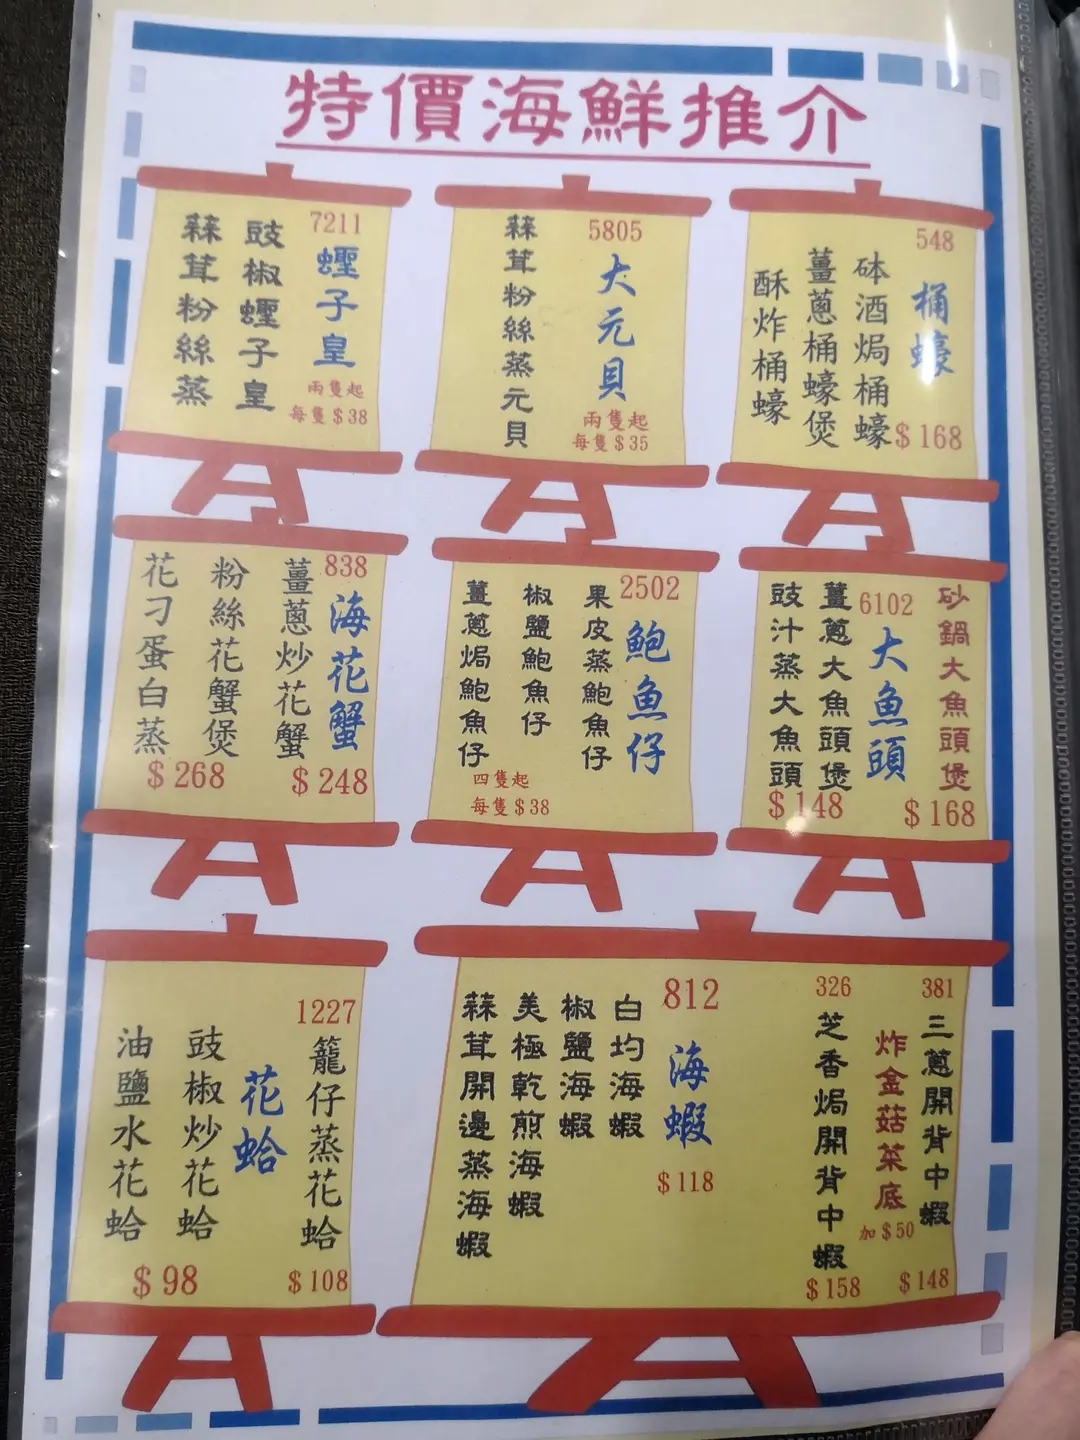 特價海鮮推介
7211
蟶子皇
兩隻起
每隻$38
豉椒蟶子皇
蒜茸粉絲蒸
5805
大元貝
兩隻起
每隻$35
蒜茸粉絲蒸元貝
548
桶蠔
砵酒焗桶蠔
薑蔥桶蠔煲
酥炸桶蠔
$168
838
海花蟹
薑蔥炒花蟹
$248
粉絲花蟹煲
花刁蛋白蒸
$268
2502
鮑魚仔
果皮蒸鮑魚仔
椒鹽鮑魚仔
薑蔥焗鮑魚仔
四隻起
每隻$38
砂鍋大魚頭煲
$168
6102
大魚頭
薑蔥大魚頭煲
豉汁蒸大魚頭
$148
1227
籠仔蒸花蛤
$108
花蛤
豉椒炒花蛤
油鹽水花蛤
$98
381
三蔥開背中蝦
$148
炸金菇菜底
加$50
326
芝香焗開背中蝦
$158
812
海蝦
$118
白均海蝦
椒鹽海蝦
美極乾煎海蝦
蒜茸開邊蒸海蝦